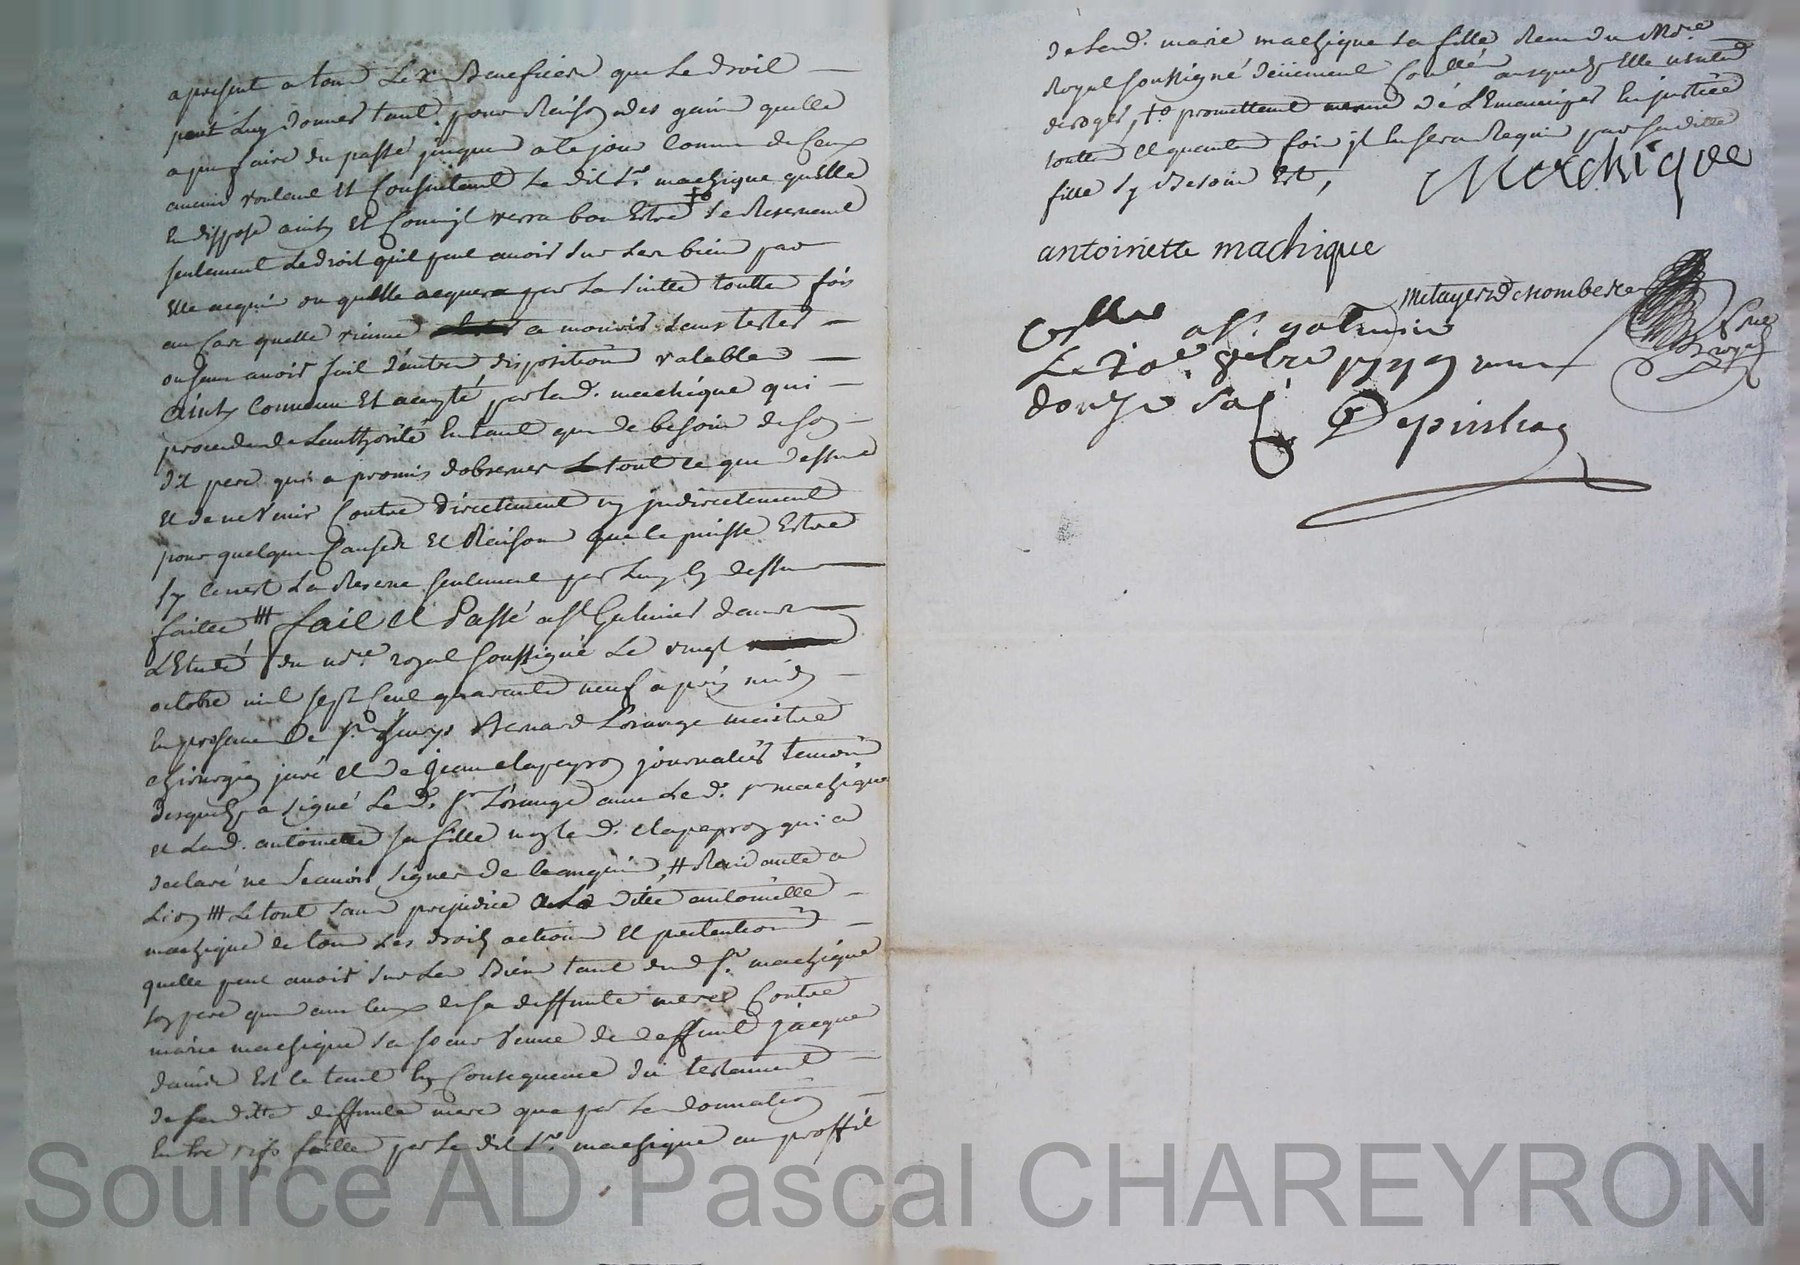 apresent a tous les Beneficed que le droit
peut Luy donner tant pour Raison des gains quelle
a peu faire du passé jusques a le jour Comme de Ceux
avenir voulant Et Consentant Le dit Sr. machique quElle
En dispose ainsy Et Comm'jl verra bon Estre ‡o Se Reservant
seulement Le droit quil peut avoir sur Les bien par
Elle acquis ou quElle acquera par La suitte toutte fois
au Cas quelle vienne a mourir sans tester
ou sans avoir fait d'autres disposition valable
Ainsy Convenu Et accepté par lad. machique qui
procedande Lauthorité En tant que de besoin de son
dit pere qui a promis dobserver tout ce que dessus
Et de ne Venir Contre directement ny jndirectement
pour quelque Causes Et Raison que le puisse Estre
sy cenest La Reserve seulement par Luy cy dessus
faitte ### fait Et Passé a St Galmier dans
LEtude du nore. royal soussigné Le vingt
octobre mil sept Cent quarante neuf apres midy
En presence De sr. Bernard Lorange maistre
chirurgien juré Et de jean clapeyron journalier temoins
desquels a signé Le d. Sr Lorange avec Le d. sr machique
Et Lad. antoinette sa fille non le d. clapeyron qui a
declaré ne scavoir signer de ce enquis, # Residante a
Lion ### Le tout sans prejudice a La ditte antoinette
machique de tous Les droits actions Et pretentions
quelle peut avoir sur Les Biens tant dud Sr. machique
son pere que sur Ceux de sa deffunte mere Contre
marie machique sa soeur Veuve de deffunt jacque
damier Et ce tant En Consequence du testament
de sa ditte deffunte mere que par La donnation
Entre vifs faitte par Le dit Sr. machique au proffit
de Lad. marie machique sa fille Reçu du Nore.
Royal soussigné deüement Conllé auxquels Elle n'entend
deroger, ‡o promettant de L'Emanciper En justice
toutte Et quantes fois jl En sera Requis par sa ditte
fille sy Besoin Est,
Machique
antoinette machique
Metayer Dechombere
Nre
Royal
Collé a St. galmier
Le 20e. 8bre 1749 reçu
douze sols
Depinhac
Source AD Pascal CHAREYRON